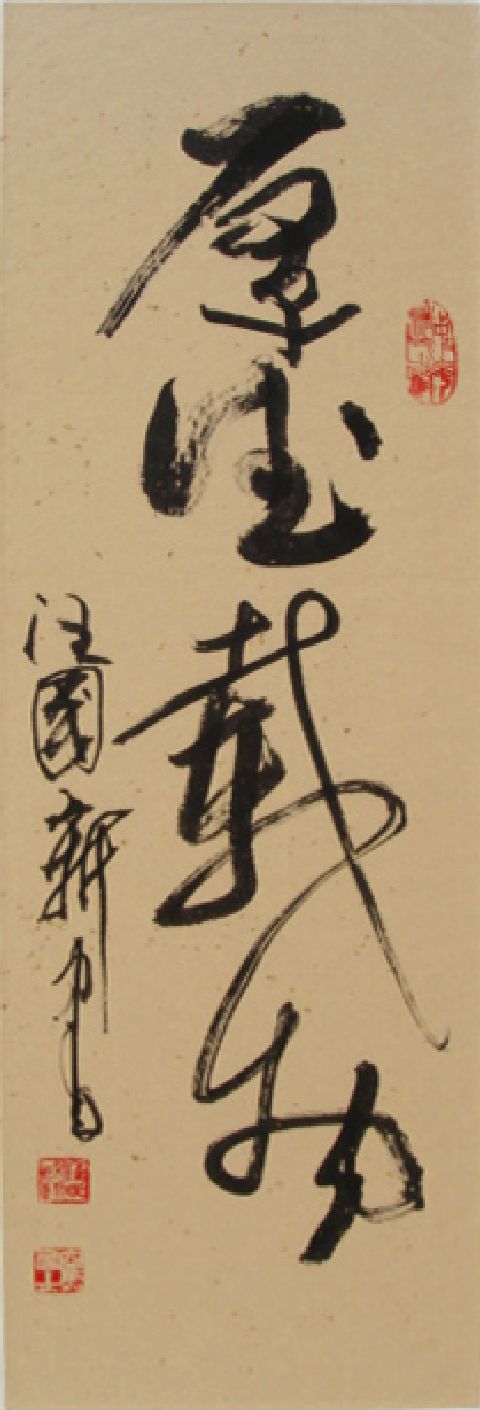 厚德载物
汪國新書